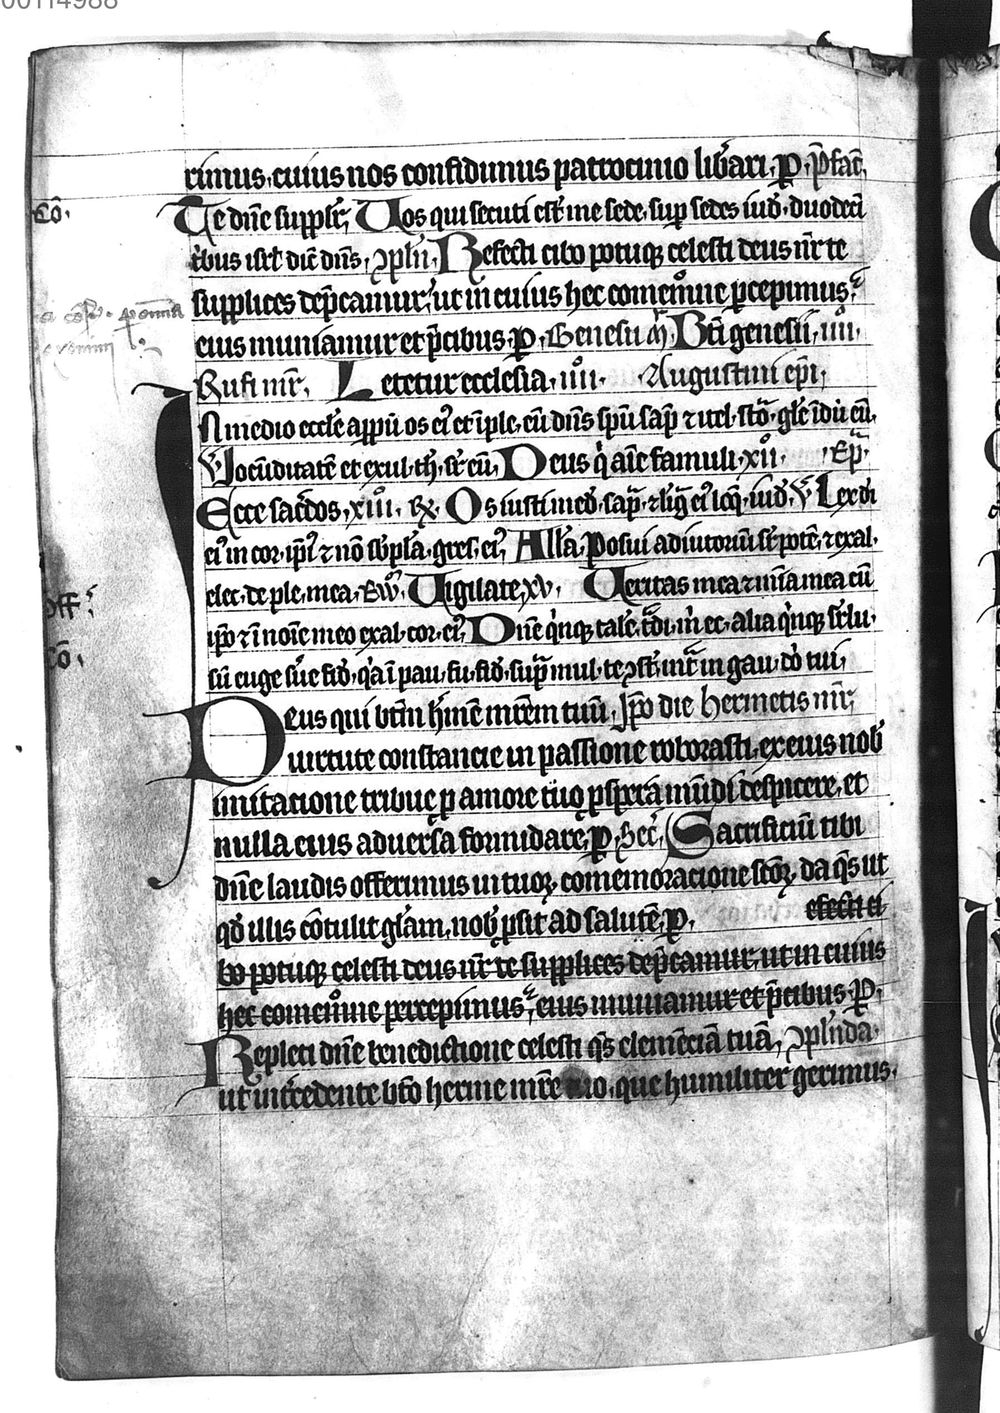 00114988
rimus, cuius nos confidimus patrocinio lib̾ari, ꝑ. p̄fac̄.
Cō.
Te dn̄e suppl̾r, Uos qui secuti est̾ me sede. sup sedes iud̾. duodeci
t̾bus isrl̾ dic̄ dn̄s, ꝯpln̄. Refecti cibo potuqꝫ celesti deus nr̄ te
supplices dep̄camur, ut in cuius hec comem̾one ꝑcepimus,
eius muniamur et p̄cibus. ꝑ. Genesii m̄. Bt̄i genesii, iiii.
Rufi mr̄. Letetur ecclesia. iiii. Augustini ep̄i,
In medio eccl̄e appuit os ei᷒ et īple. eū dn̄s spū sap̄ ⁊ ītel. sto̾. gl̄e īduit eū.
V̾ Jocūditatē et exul. th̾. sr̄ eū, Deus q̾ aīe famuli. xii. Ep̄.
Ecce sac̾dos, xiii. Rx. Os iusti med̾. sap̄. ⁊ lig̾ ei᷒ loq̾. iud̾. V̾ Lex di
ei᷒ in cor. ip̾i᷒ ⁊ nō sb̾plā. gres. ei᷒, Allā. Posui adiutoriū sr̄ potē. ⁊ exal.
elec. de ple. mea. Ew̾. Uigilate, xv. Ueritas mea ⁊ mīa mea cū
off̾.
ip̄o ⁊ ī noīe meo exal. cor. ei᷒, Dn̄e q̾nqꝫ tale. t̾di. m̾ ec. alia q̾nqꝫ sr̄ lu.
Cō.
sū euge s̾ue fid̾. q̾a ī pau. fu. fid̾. sup̄ mul. te ꝯst̾. int̾ in gau. do̾ tui,
Deus qui btm̄ h̾mē mr̄em tuū, Ip̄o die hermetis mr̄,
uirtute constancie in passione roborasti, ex eius nob̾
imitacione tribue ꝑ amore tuo ꝓspera mūdi despicere, et
nulla eius aduersa formidare, ꝑ. Sec̾. Sacrificiū tibi
dn̄e laudis offerimus in tuoꝝ comemoracione sc̄oꝝ, da q̄s ut
qd̾ illis cōtulit gl̄am. nob̾ ꝓsit ad salutē. ꝑ. efecti ci
bo potuqꝫ celesti deus nr̄ te supplices dep̄camur, ut in cuius
hec comem̾one percepimus, eius muniamur et p̄cibus. ꝑ.
Repleti dn̄e benedictione celesti q̄s clemēciā tuā, ꝯpln̄da.
ut int̾cedente bt̄o herme mr̄e tuo, que humiliter gerimus.